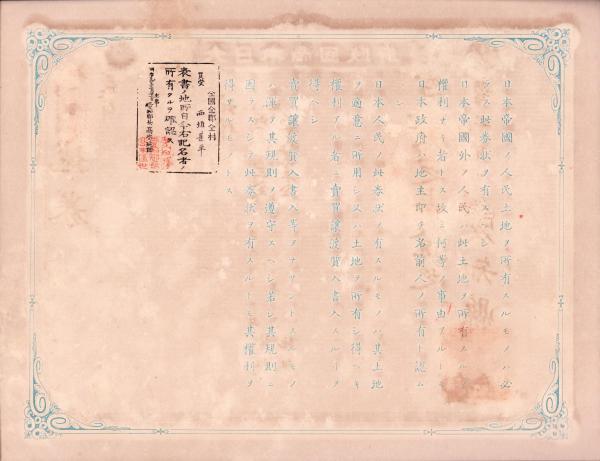 日本帝國ノ人民土地ヲ所有スルモノハ必
ラス此券狀ヲ有スヘシ
日本帝國外ノ人民ハ此土地ヲ所有スルノ
權利ナキ者トス故ニ何等ノ事由アルトモ
日本政府ハ地主即チ名前人ノ所有ト認ム
ヘシ
日本人民ノ此券狀ヲ有スルモノハ其土地
ヲ適意ニ所用シ又ハ土地ヲ所有シ得ヘキ
權利アル者ニ賣買讓渡質入書入スルヲ
得ヘシ
賣買讓渡質入書入等ヲナサントスルモノ
ハ渾テ其規則ヲ遵守スヘシ若シ其規則ニ
因ラスシテ此券狀ヲ有スルトモ其權利ヲ
得サルモノトス
仝國仝郡仝村
買受
表書ノ地所自今右記名者ノ
所有タルヲ確認ス